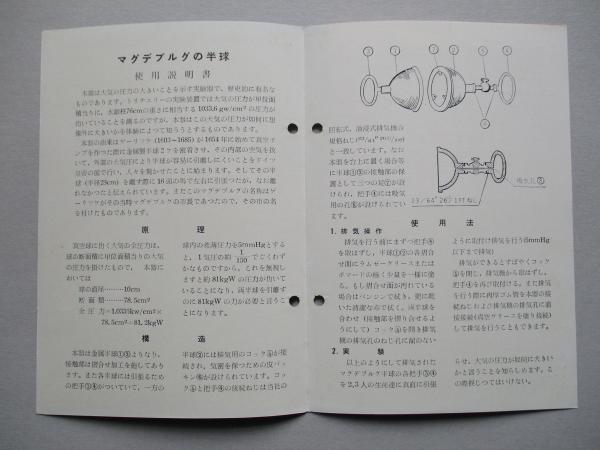 マグデブルグの半球
使用説明書
本器は大気の圧力の大きいことを示す実験器で、歴史的に有名な
ものであります。トリチェリーの実験装置では大気の圧力が単位面
積当りに、水銀柱76cmの重さに相当する1033.6gw/cm²の圧力が
働いていることを識るのですが、本器はこの大気の圧力が如何に想
像外に大きいかを体験によつて知ろうとするものであります。
本器の由来はゲーリツケ(1602~1685)が1654年に始めて真空ポ
ンプを作つた際に金属製半球2ケを密着させ、その内部の空気を抜
いて、外部の大気圧により半球が容易に引離しにくいことをドイツ
皇帝の前で行い、人々を驚かせたことに始まります。そしてその半
球(半径23cm)を離す際に16頭の馬で左右に引張つたが、なお離
れなかつたと伝えられています。またこのマグデブルグの名称はゲ
ーリツケがその当時マグデブルグの市長であつたので、その市の名
を付けたものであります。
原理
真空球に働く大気の全圧力は、
球の断面積に単位面積当りの大気
の圧力を掛けたもので、本器に
おいては
球の直径………10cm
断面積………78.5cm²
全圧力=1.033kw/cm²×
78.5cm²=81.2kgW
球内の残溜圧力を5mmHgとする
と、1気圧の約1/150でごくわず
かなものですから、これを無視し
ますと約81kgWの圧力が働いて
いることになり、両半球を引離す
のに81kgWの力が必要と言うこ
とになります。
構造
本器は金属半球①②よりなり、
接触部は摺合せ加工を施してあり
ます。また各半球には引張るため
の把手③④がついていて、一方の
半球②には排気用のコック⑤が接
続され、気密を保つための皮パッ
キン⑥が設けられています。コッ
ク⑤と把手④の接続ねじは当社の
③ ① ① ② ⑤ ④
⑥
回転式、油浸式排気機台
規格ねじ
と一致しています。なお
本器を台上に置く場合等
に半球①②の接触部の保
護として三つの足⑦が設
けられ、把手④には吸気
用の孔⑧が設けられてい
ます。
23/64" 26ウイットねじ
吸気孔⑧
使用法
1. 排気操作
排気を行う前にまずつ把手④
を取はずし、半球①②の各摺合
せ面にラムゼーグリースまたは
ポマードの極く少量を一様に塗
る。もし摺合せ面が汚れている
場合はベンジンで拭き、更に乾
いた清潔な布で拭く。両半球を
合わせ(接触部を摺り合せるよ
うにして)コック⑤を開き排気
機の排気孔のねじ孔に漏のない
ように取付け排気を行う(5mmHg
以下まで排気)
排気ができるとすばやくコック
⑤を閉じ、排気機から取はずし、
把手④を再び取付ける。また排気
を行う際に肉厚ゴム管を本器の接
続ねじおよび排気機の排気孔に直
接接続(真空グリースを塗り接続)
して排気を行うこともできます。
2. 実験
以上のようにして排気された
マグデブルグ半球の各把手③④
を2,3人の生徒達に真直に引張
らせ、大気の圧力が如何に大きい
かと言うことを知らしめます。こ
の際捩じつてはいけない。